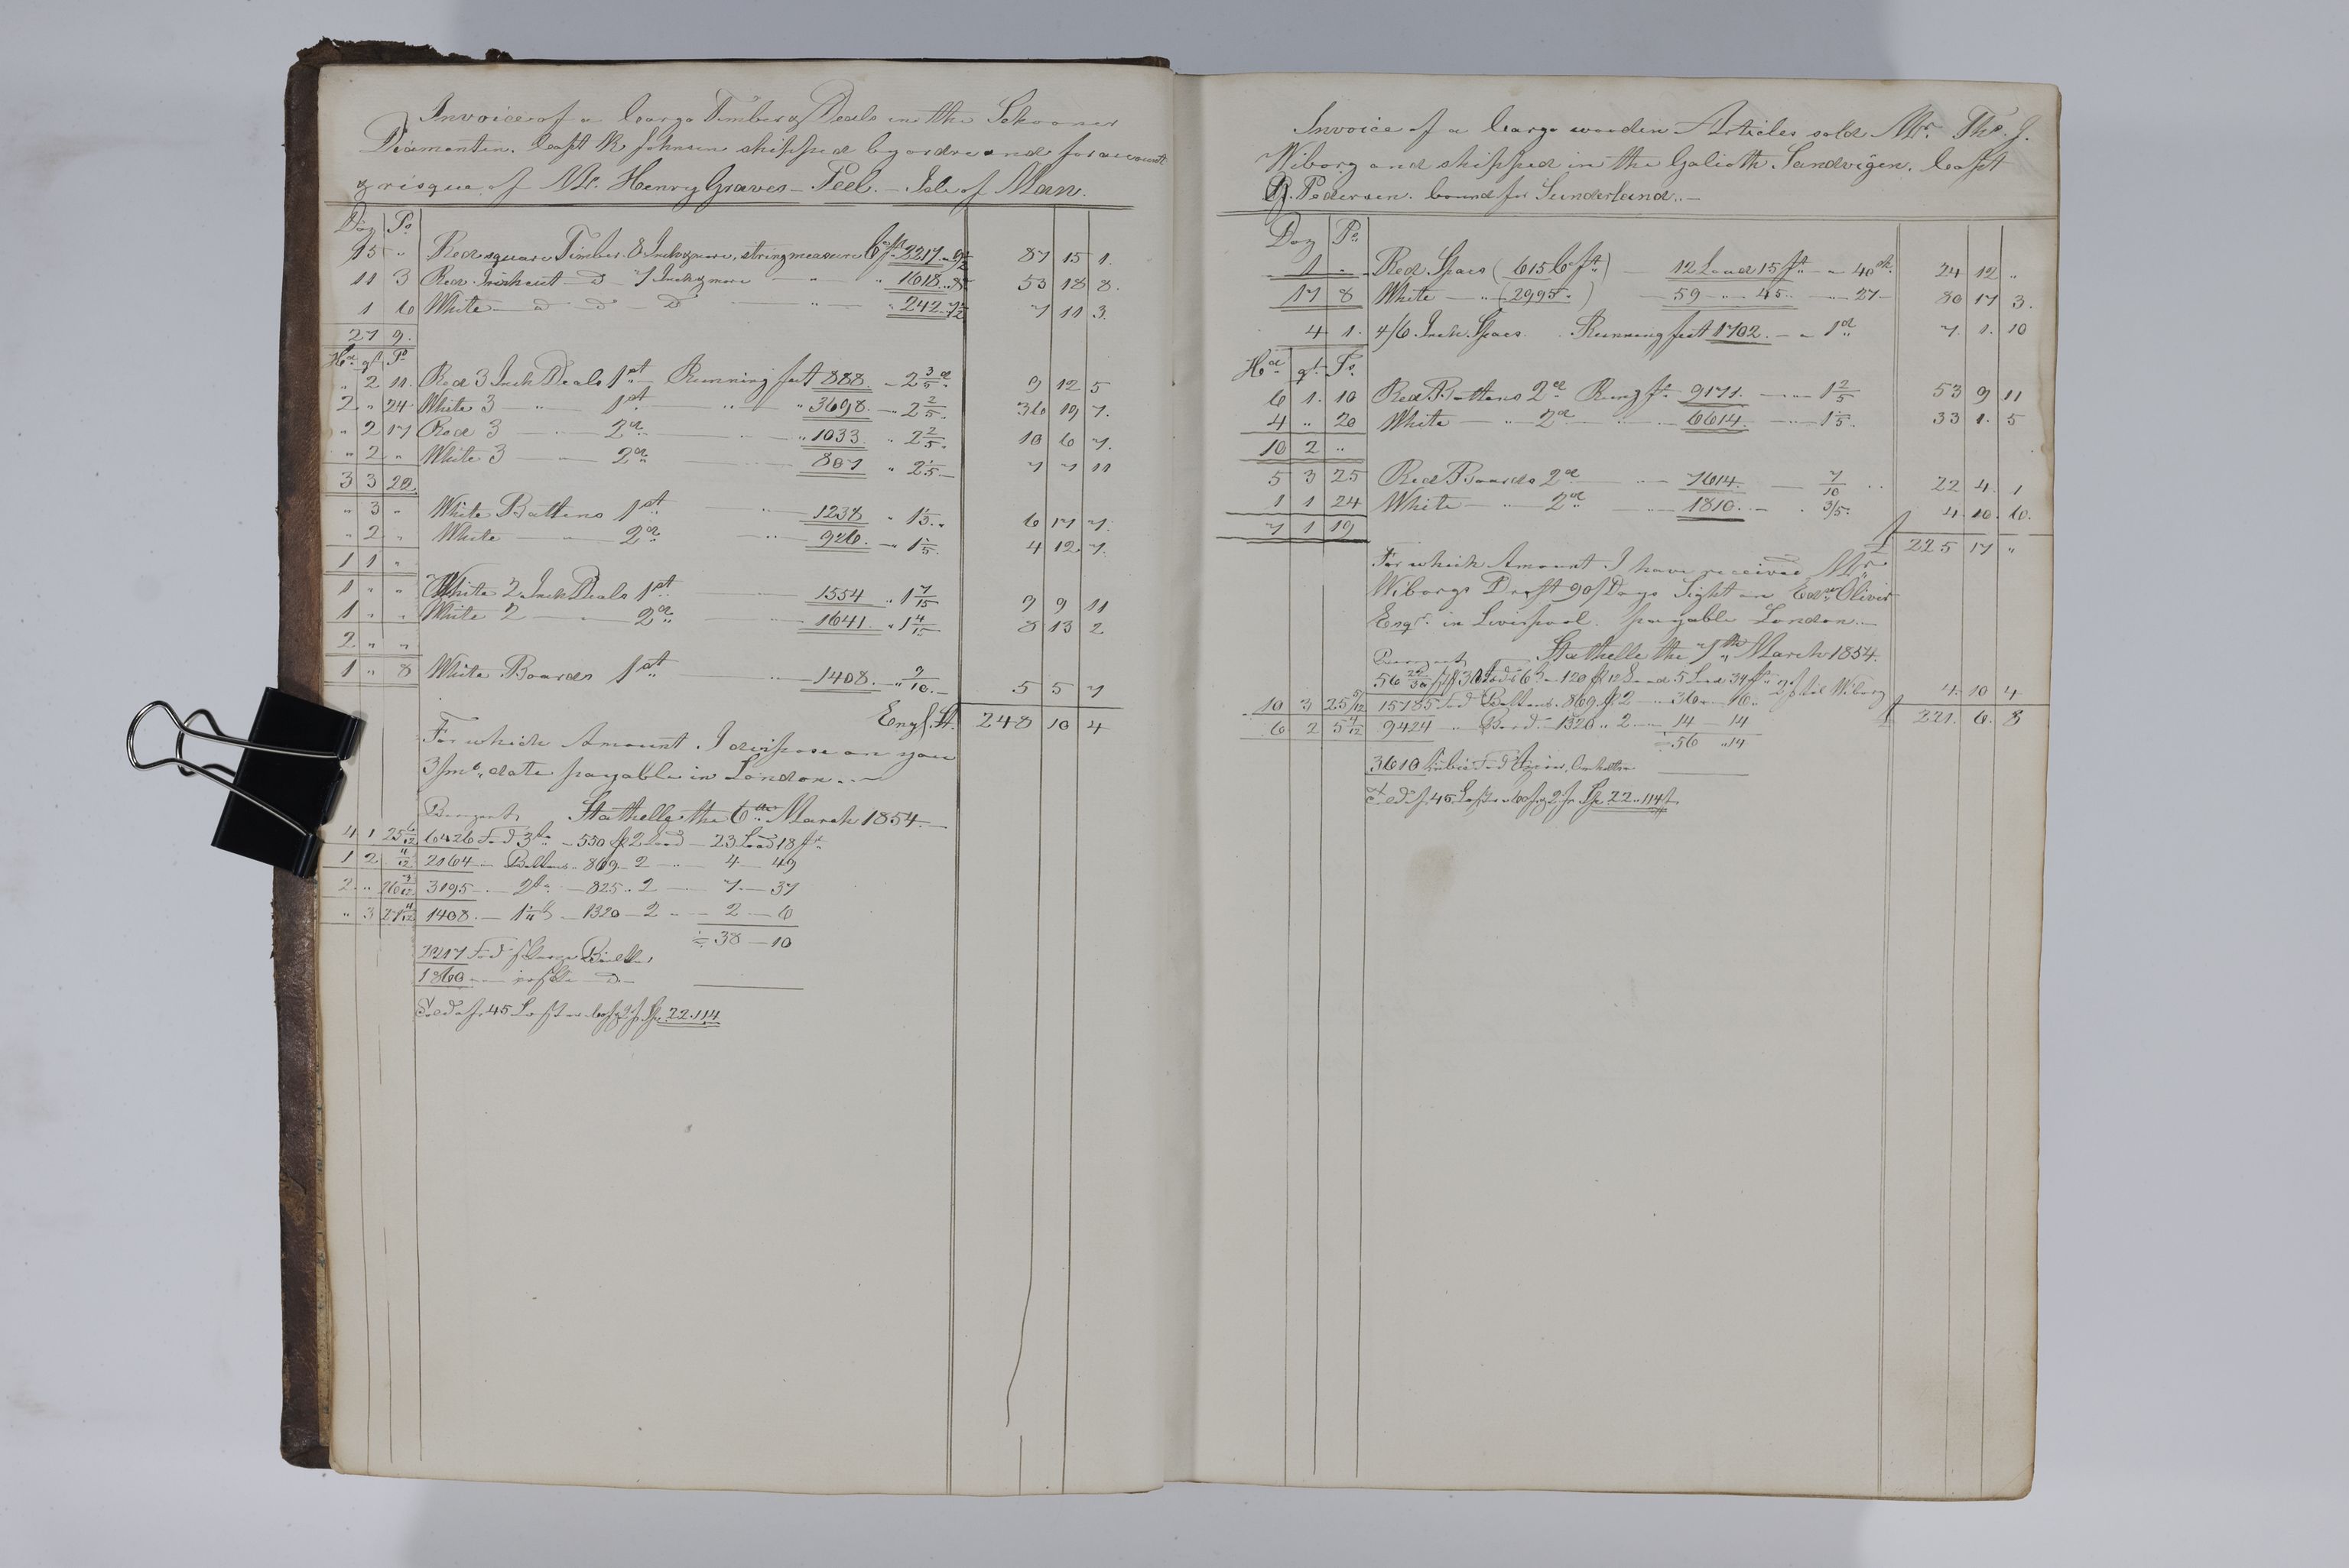 Invoice of a Cargo Timber & Deals in the Schooner
Diamanten. Capt R Johnsen shipped by ordre and for account
& risque of Mr. Henry Graves - Peel. - Isle of Man.
Doz Ps
15 " Red square Timber 8 Inch & more, string measure Cf ft 2217 - 9½ 87 15 1.
11 3 Red Inkhut - d - 7 Inch & more " " 1618 .. 8 53 18 8.
1 6 White - d - d - d - " " 242 .. 7½ 7 11 3.
27 9.
Hd qt Ps
" 2 11. Red 3 Inch Deals 1st - Running feet 888. - 2 3/5 d 9 12 5
2 " 24 White 3 - " - 1st " " 3698. - 2 2/5 36 19 7.
" 2 17 Red 3 - " - 2d " " 1033. " 2 2/5 10 6 7.
" 2 " White 3 - " - 2d 807 " 2 1/5 - 7 7 11
3 3 22
" 3 " White Battens 1st " 1238 " 1 1/3 .. 6 17 7.
" 2 " White - " - 2d " 926. - " 1 1/5. 4 12 7.
1 1 "
1 " " White 2 Inch Deals 1st 1554 " 1 7/15 9 9 11
1 " " White 2 - " - 2d 1641. " 1 4/15 8 13 2
2 " "
1 " 8 White Boards 1st 1408. " 9/10. - 5 5 7
Engl. St. 248 10 4
For which Amount I dispose on you
3/m date payable in London. -
Stathelle the 6th March 1854. -
4 1 25 6/12 6426 Fod 3" - 550 pr 2 Load - 23 Load 18 ft
1 2 11/12 2164 - Battens .. 869 .. 2 - " - 4 - 49
2 " 26 3/12 3195 - " 2" - 825 .. 2 - 7 - 37
" 3 27 11/12 1408. - 1 1/4" - 1320 - 2 - 2 - 6
÷ 38 - 10
1860
45 22.114
Invoice of a Cargo wooden Articles sold Mr. Ths. J.
Wiborg and shipped in the Galioth Sandvigen. Capt
P. Pedersen. bound for Sunderland. -
Doz Ps
1 " Red Spars (615 Cf ft) 12 Load 15 ft - " 40 sh. 24 12 "
17 8 White - " (2995 ") - 59 - " 45 .. - " 27 - 80 17 3.
4 1. 4/6 Inch Spars. Running feet 1702. - " 1d 7. 1. 10
Hd qt Ps
6 1. 10 Red Battens 2d Rung ft 9171. - 1 2/5 53 9 11
4 " 20 White - " - 2d - " 6614. - 1 1/5. 33 1. 5
10 2 "
5 3 25 Red Boards 2d - " 7614. - 7/10 .. 22 4. 1
1 1 24 White - " - 2d - 1810. - . 3/5. 4. 10. 6.
7 1 19 £ 225 17 "
For which Amount I have received Mr
Wiborgs Draft 90/Days Sight on Edwd Oliver
Esqr. in Liverpool. payable London. -
Stathelle the 7th March 1854.
56 22/30 120 pr 12 Load 5 Load 34 ft 2 Wiborg 4. 10 4
10 3 25 5/12 15785 Fod Battens .. 869 pr 2 - " 36 - " 16 .. £ 221. 6. 8
6 2 5 4/12 9424 " Bord - 1320 .. 2 - " 14 14
÷ 56 " 14
3610
45 22 .. 114